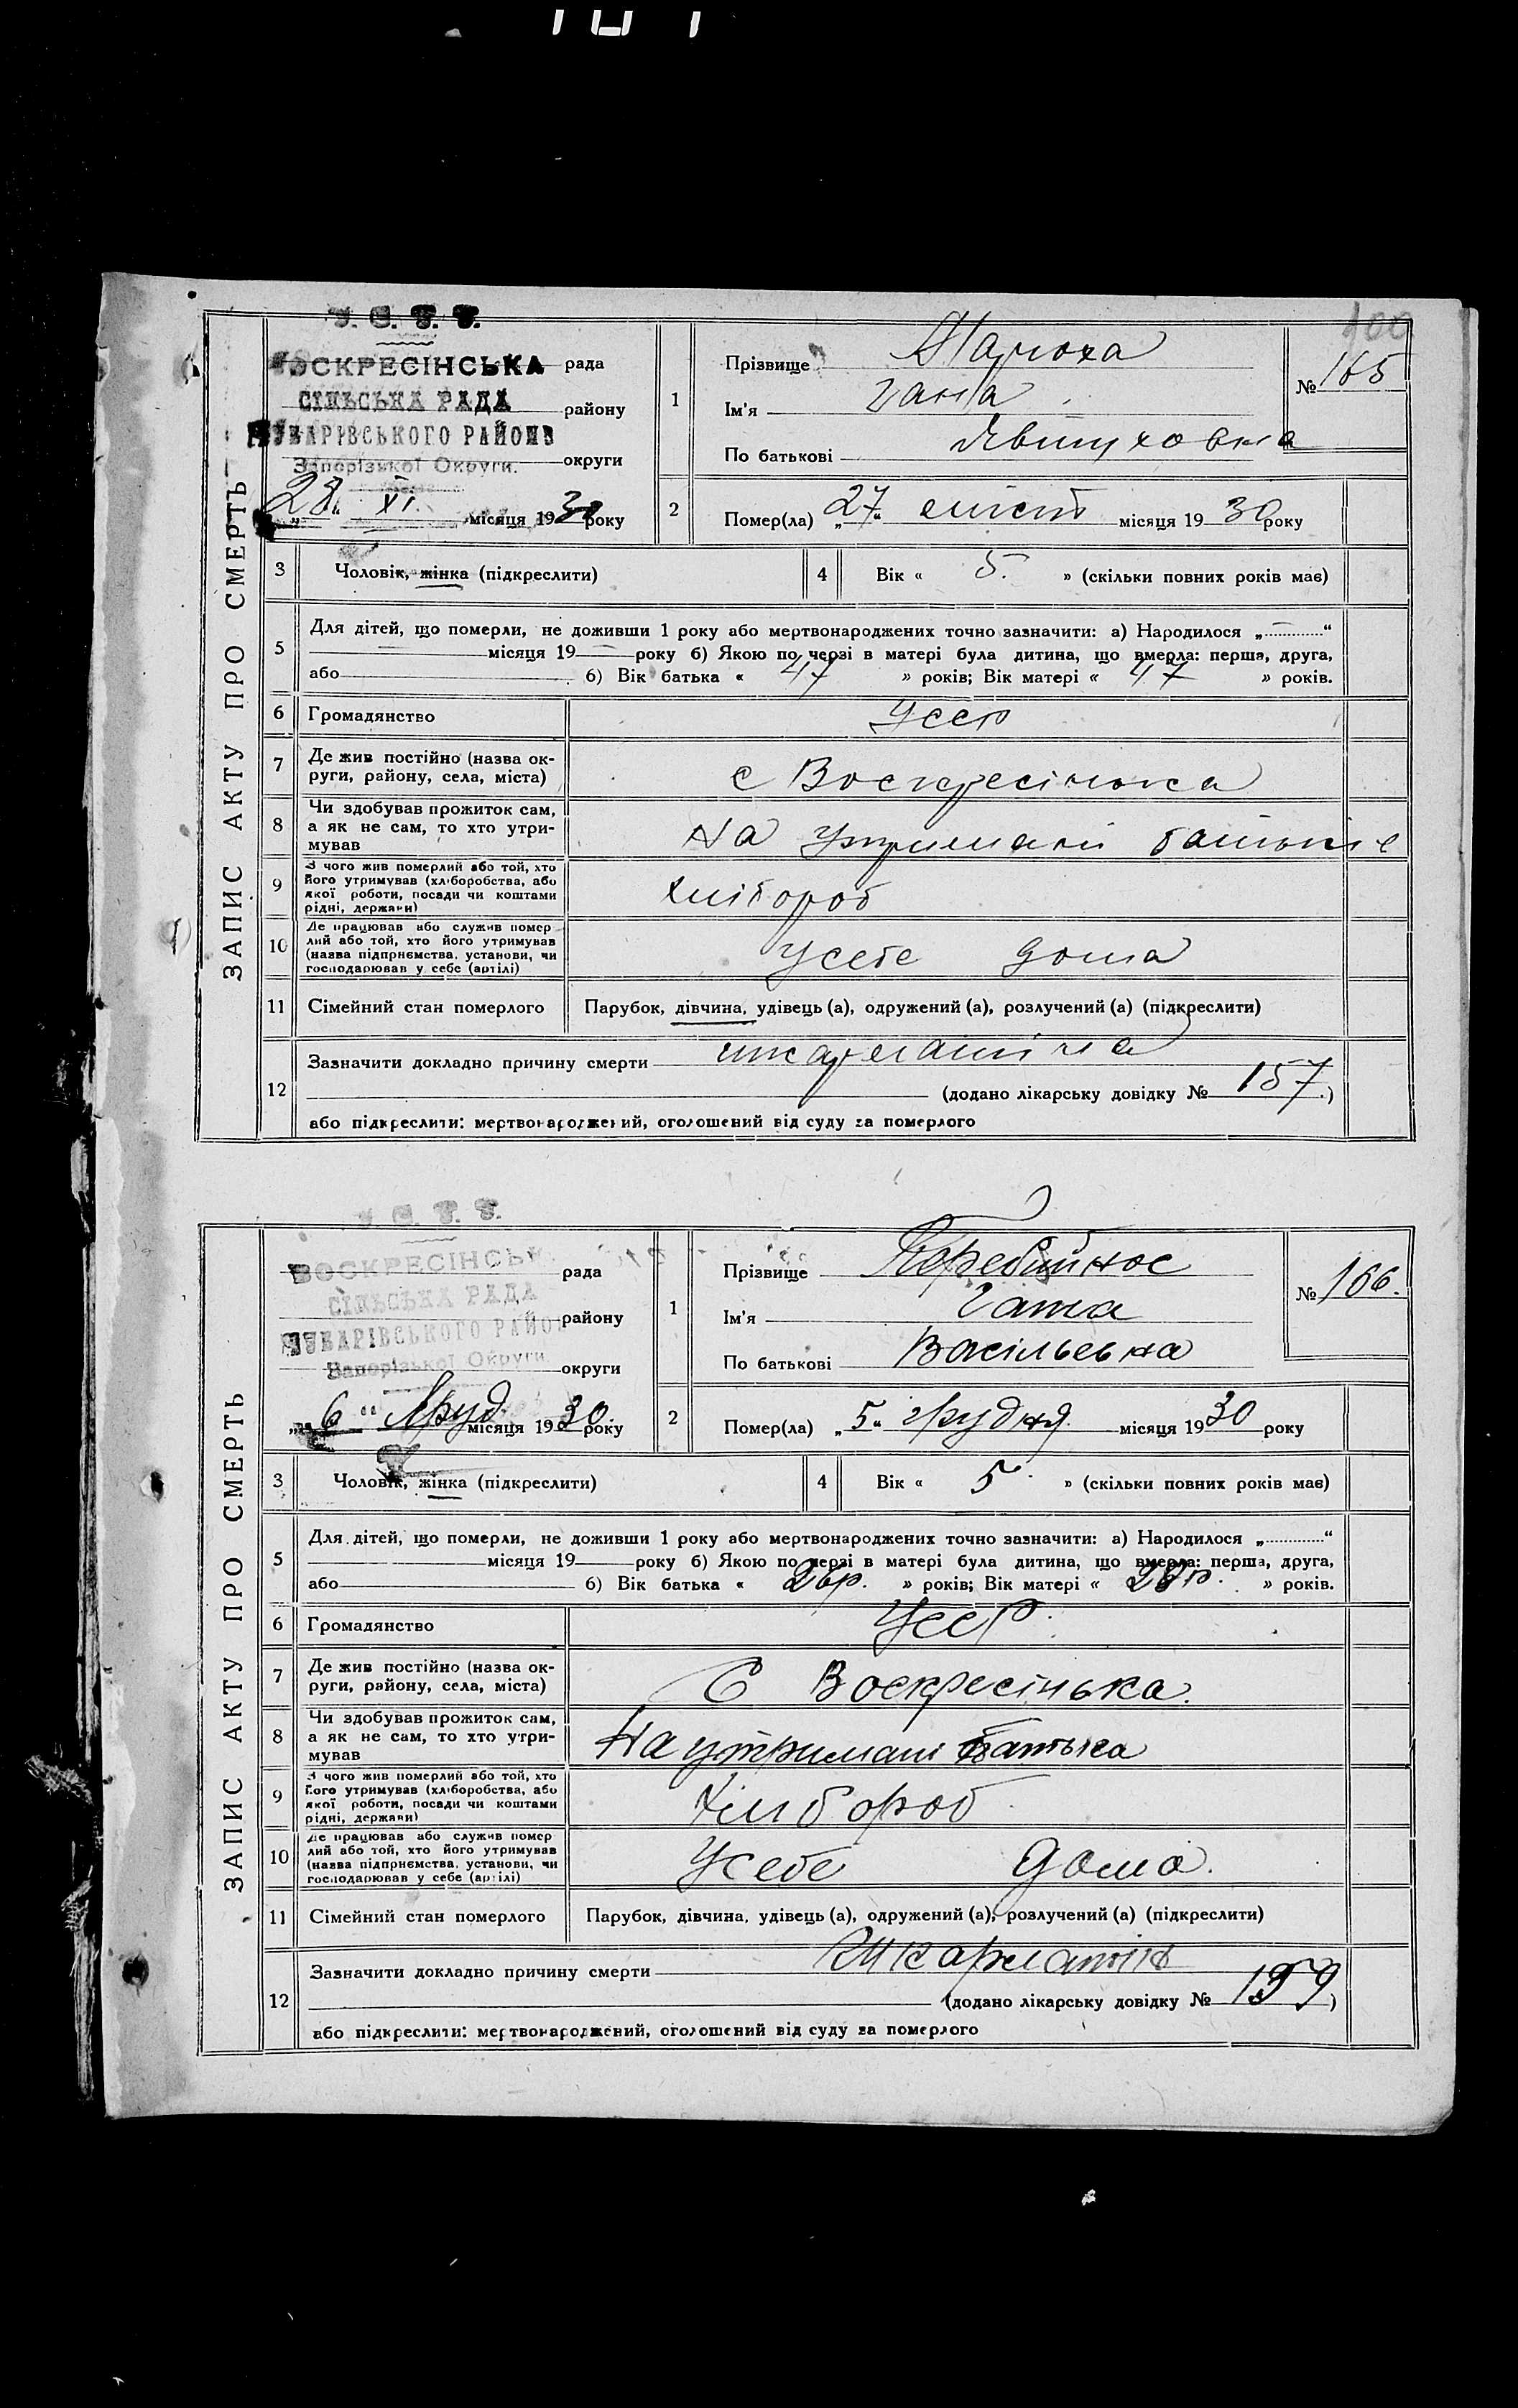 У. С. Р. Р.
ВОСКРЕСІНСЬКА рада
СІЛЬСЬКА РАДА району
ЧУБАРІВСЬКОГО РАЙОНВ
Запорізької Округи. округи
„28“ XI. місяця 1930 року
100
1 Прізвище
Ім'я Гана
По батькові
№ 165
2 Помер(ла) „27“ лист місяця 1930 року
3 Чоловік, жінка (підкреслити)
4 Вік « 5. » (скільки повних років має)
5 Для дітей, що померли, не доживши 1 року або мертвонароджених точно зазначити: а) Народилося „ “
місяця 19 — року б) Якою по черзі в матері була дитина, що вмерла: перша, друга,
або б) Вік батька « 47 » років; Вік матері « 47 » років.
6 Громадянство Усср
7 Де жив постійно (назва округи, району, села, міста) с Воскресінька
8 Чи здобував прожиток сам,
а як не сам, то хто утри-
мував На утримані батьків
9 З чого жив померлий або той, хто
його утримував (хліборобства, або
якої роботи, посади чи коштами
рідні, держави) хлібороб
10 Де працював або служив помер
лий або той, хто його утримував
(назва підприємства, установи, чи
господарював у себе (артілі) Усебе дома
11 Сімейний стан померлого Парубок, дівчина, удівець (а), одружений (а), розлучений (а) (підкреслити)
12 Зазначити докладно причину смерти шкарлатіна
(додано лікарську довідку № 157.)
або підкреслити: мертвонароджений, оголошений від суду за померлого
ЗАПИС АКТУ ПРО СМЕРТЬ
У. С. Р. Р.
ВОСКРЕСІНСЬК рада
СІЛЬСЬКА РАДА району
ЧУБАРІВСЬКОГО РАЙОН
Запорізької Округи округи
„6“ Груд. місяця 1930. року
1 Прізвище Перебийнос
Ім'я Ганна
По батькові Васільевна
№ 166.
2 Помер(ла) „5“ грудня. місяця 1930 року
3 Чоловік, жінка (підкреслити)
4 Вік « 5 » (скільки повних років має)
5 Для дітей, що померли, не доживши 1 року або мертвонароджених точно зазначити: а) Народилося „ “
місяця 19 року б) Якою по черзі в матері була дитина, що вмерла: перша, друга,
або б) Вік батька « 26р. » років; Вік матері « р. » років.
6 Громадянство УССР
7 Де жив постійно (назва округи, району, села, міста) С Воскресінька.
8 Чи здобував прожиток сам,
а як не сам, то хто утри-
мував На утримані батька
9 З чого жив померлий або той, хто
його утримував (хліборобства, або
якої роботи, посади чи коштами
рідні, держави) хлібороб
10 Де працював або служив помер
лий або той, хто його утримував
(назва підприємства, установи, чи
господарював у себе (артілі) Усебе Дома.
11 Сімейний стан померлого Парубок, дівчина, удівець (а), одружений (а), розлучений (а) (підкреслити)
12 Зазначити докладно причину смерти Шкарлатіна
(додано лікарську довідку № 159)
або підкреслити: мертвонароджений, оголошений від суду за померлого
ЗАПИС АКТУ ПРО СМЕРТЬ